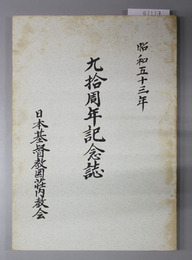 昭和五十三年
九拾周年記念誌
日本基督教団荘内教会